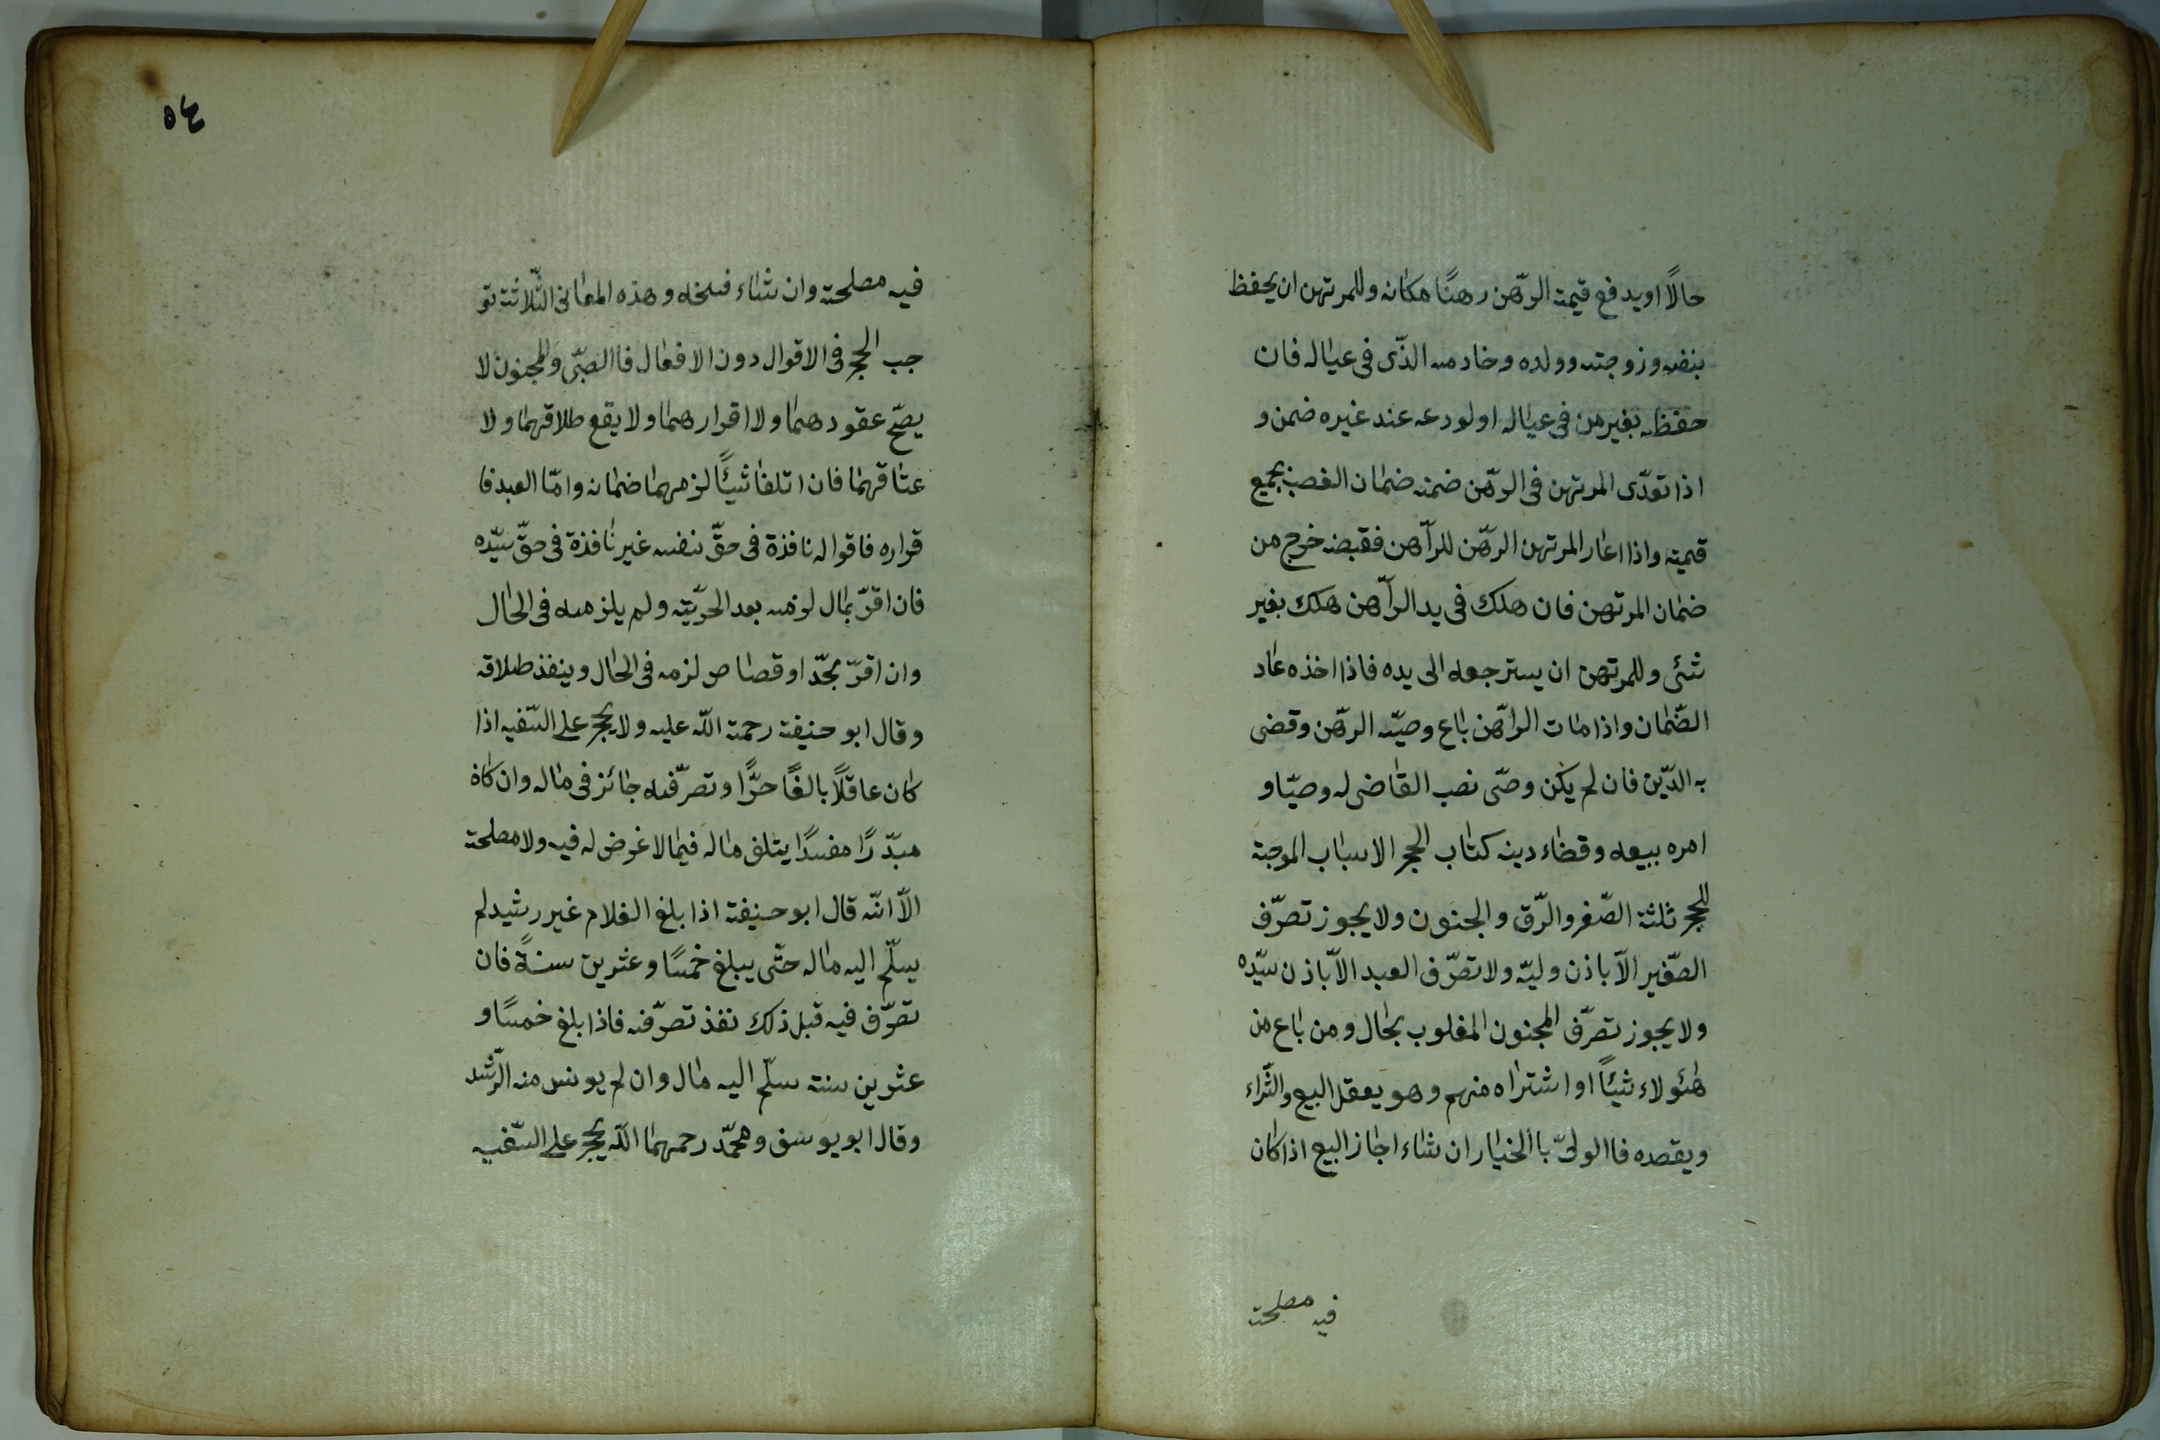 حالًا او يدفع قيمة الرّهن رهنًا مكانه وللمرتهن ان يحفظ
بنفسه وزوجته وولده وخادمه الذّى فى عياله فان
حفظه بغير من فى عياله او لودعه عند غيره ضمن و
اذا تعدّى المرتهن فى الرّهن ضمنه ضمان الغصب بجميع
قيمته واذا اعار المرتهن الرّهن للرآهن فقبضه خرج من
ضمان المرتهن فان هلك فى يد الرآهن هلك بغير
شئى وللمرتهن ان يسترجعه الى يده فاذا اخذه عاد
الضّمان واذا مات الراهّن باع وصيّه الرّهن وقضى
به الدّين فان لم يكن وصّى نصب القاضى له وصيّا و
امره ببيعه وقضاء دينه كتاب الحجر الاسباب الموجبة
للحجر ثلثة الصّغر والرّق والجنون ولا يجوز تصرّف
الصّغير الاّ باذن وليّه ولا تصرّف العبد الاّ باذن سيّده
ولا يجوز تصرّف المجنون المغلوب بحال ومن باع من
هٰئولاء شيئًا او اشتراه منهم وهو يعقل البيع والشّراء
ويقصده فاالولىّ باالخيار ان شاء اجاز البيع اذا كان
فيه مصلحة
٥٤
فيه مصلحة وان شاء فسخه وهذه المعانى الثّلاثة تو
جب الحجر فى الاقوال دون الافعال فاالصبّى والمجنون لا
يصحّ عقودهما ولا اقرارهما ولا يقع طلاقهما ولا
عتاقهما فان اتلفا شيئًا لزمهما ضمانه وامّا العبد فا
قراره فاقواله نافذة فى حقّ نفسه غير نافذة فى حقّ سيّده
فان اقرّ بمال لزمه بعد الحرّيّة ولم يلزمه فى الحال
وان اقرّ بحدّ او قصاص لزمه فى الحال وينفذ طلاقه
وقال ابو حنيفة رحمة اللّه عليه ولا يحجر على السّفيه اذا
كان عاقلًا بالغًا حرًّا وتصرّفه جائز فى ماله وان كان
مبذّرًا مفسدًا يتلف ماله فيما لا غرض له فيه ولا مصلحة
الاّ انّه قال ابو حنيفة اذا بلغ الغلام غير رشيد لم
يسلّم اليه ماله حتّى يبلغ خمسًا وعشرين سنةً فان
تصرّف فيه قبل ذلك نفذ تصرّفه فاذا بلغ خمسًا و
عشرين سنة سلّم اليه مال وان لم يونس منه الرّشد
وقال ابو يوسف ومحمّد رحمهما اللّه يحجر على السّفيه